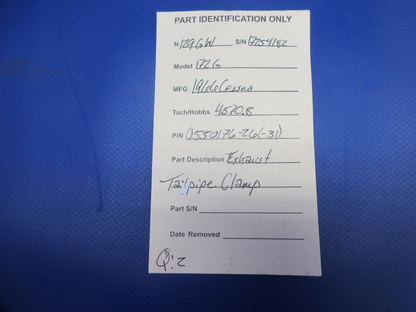 PART IDENTIFICATION ONLY
N 179GW S/N 17254182
Model 172G
MFG 1966 Cessna
Tach/Hobbs 4570.8
P/N 0550176-26(-31)
Part Description Exhaust
Tailpipe Clamp
Part S/N
Date Removed
Q: 2